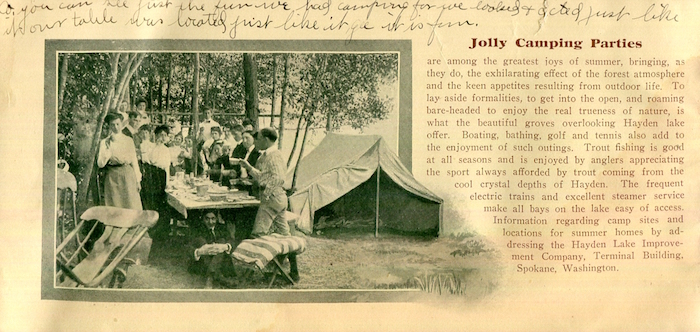 you can see just the fun we had camping for we looked & acted just like
if our table was located just like it ya it is fun.
Jolly Camping Parties
are among the greatest joys of summer, bringing, as
they do, the exhilarating effect of the forest atmosphere
and the keen appetites resulting from outdoor life. To
lay aside formalities, to get into the open, and roaming
bare-headed to enjoy the real trueness of nature, is
what the beautiful groves overlooking Hayden lake
offer. Boating, bathing, golf and tennis also add to
the enjoyment of such outings. Trout fishing is good
at all seasons and is enjoyed by anglers appreciating
the sport always afforded by trout coming from the
cool crystal depths of Hayden. The frequent
electric trains and excellent steamer service
make all bays on the lake easy of access.
Information regarding camp sites and
locations for summer homes by ad-
dressing the Hayden Lake Improve-
ment Company, Terminal Building,
Spokane, Washington.